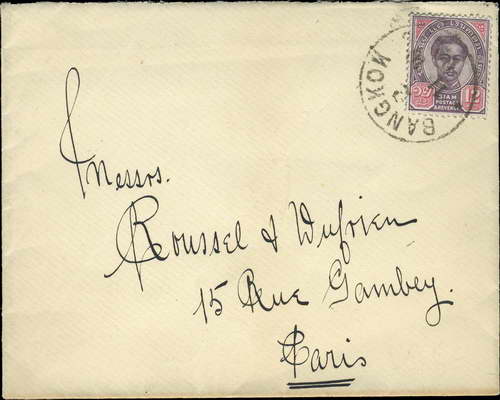 BANGKOK
SIAM
POSTAGE
& REVENUE
12
๑๒
Messrs.
Roussel & Dufrien
15 Rue Gambey.
Paris